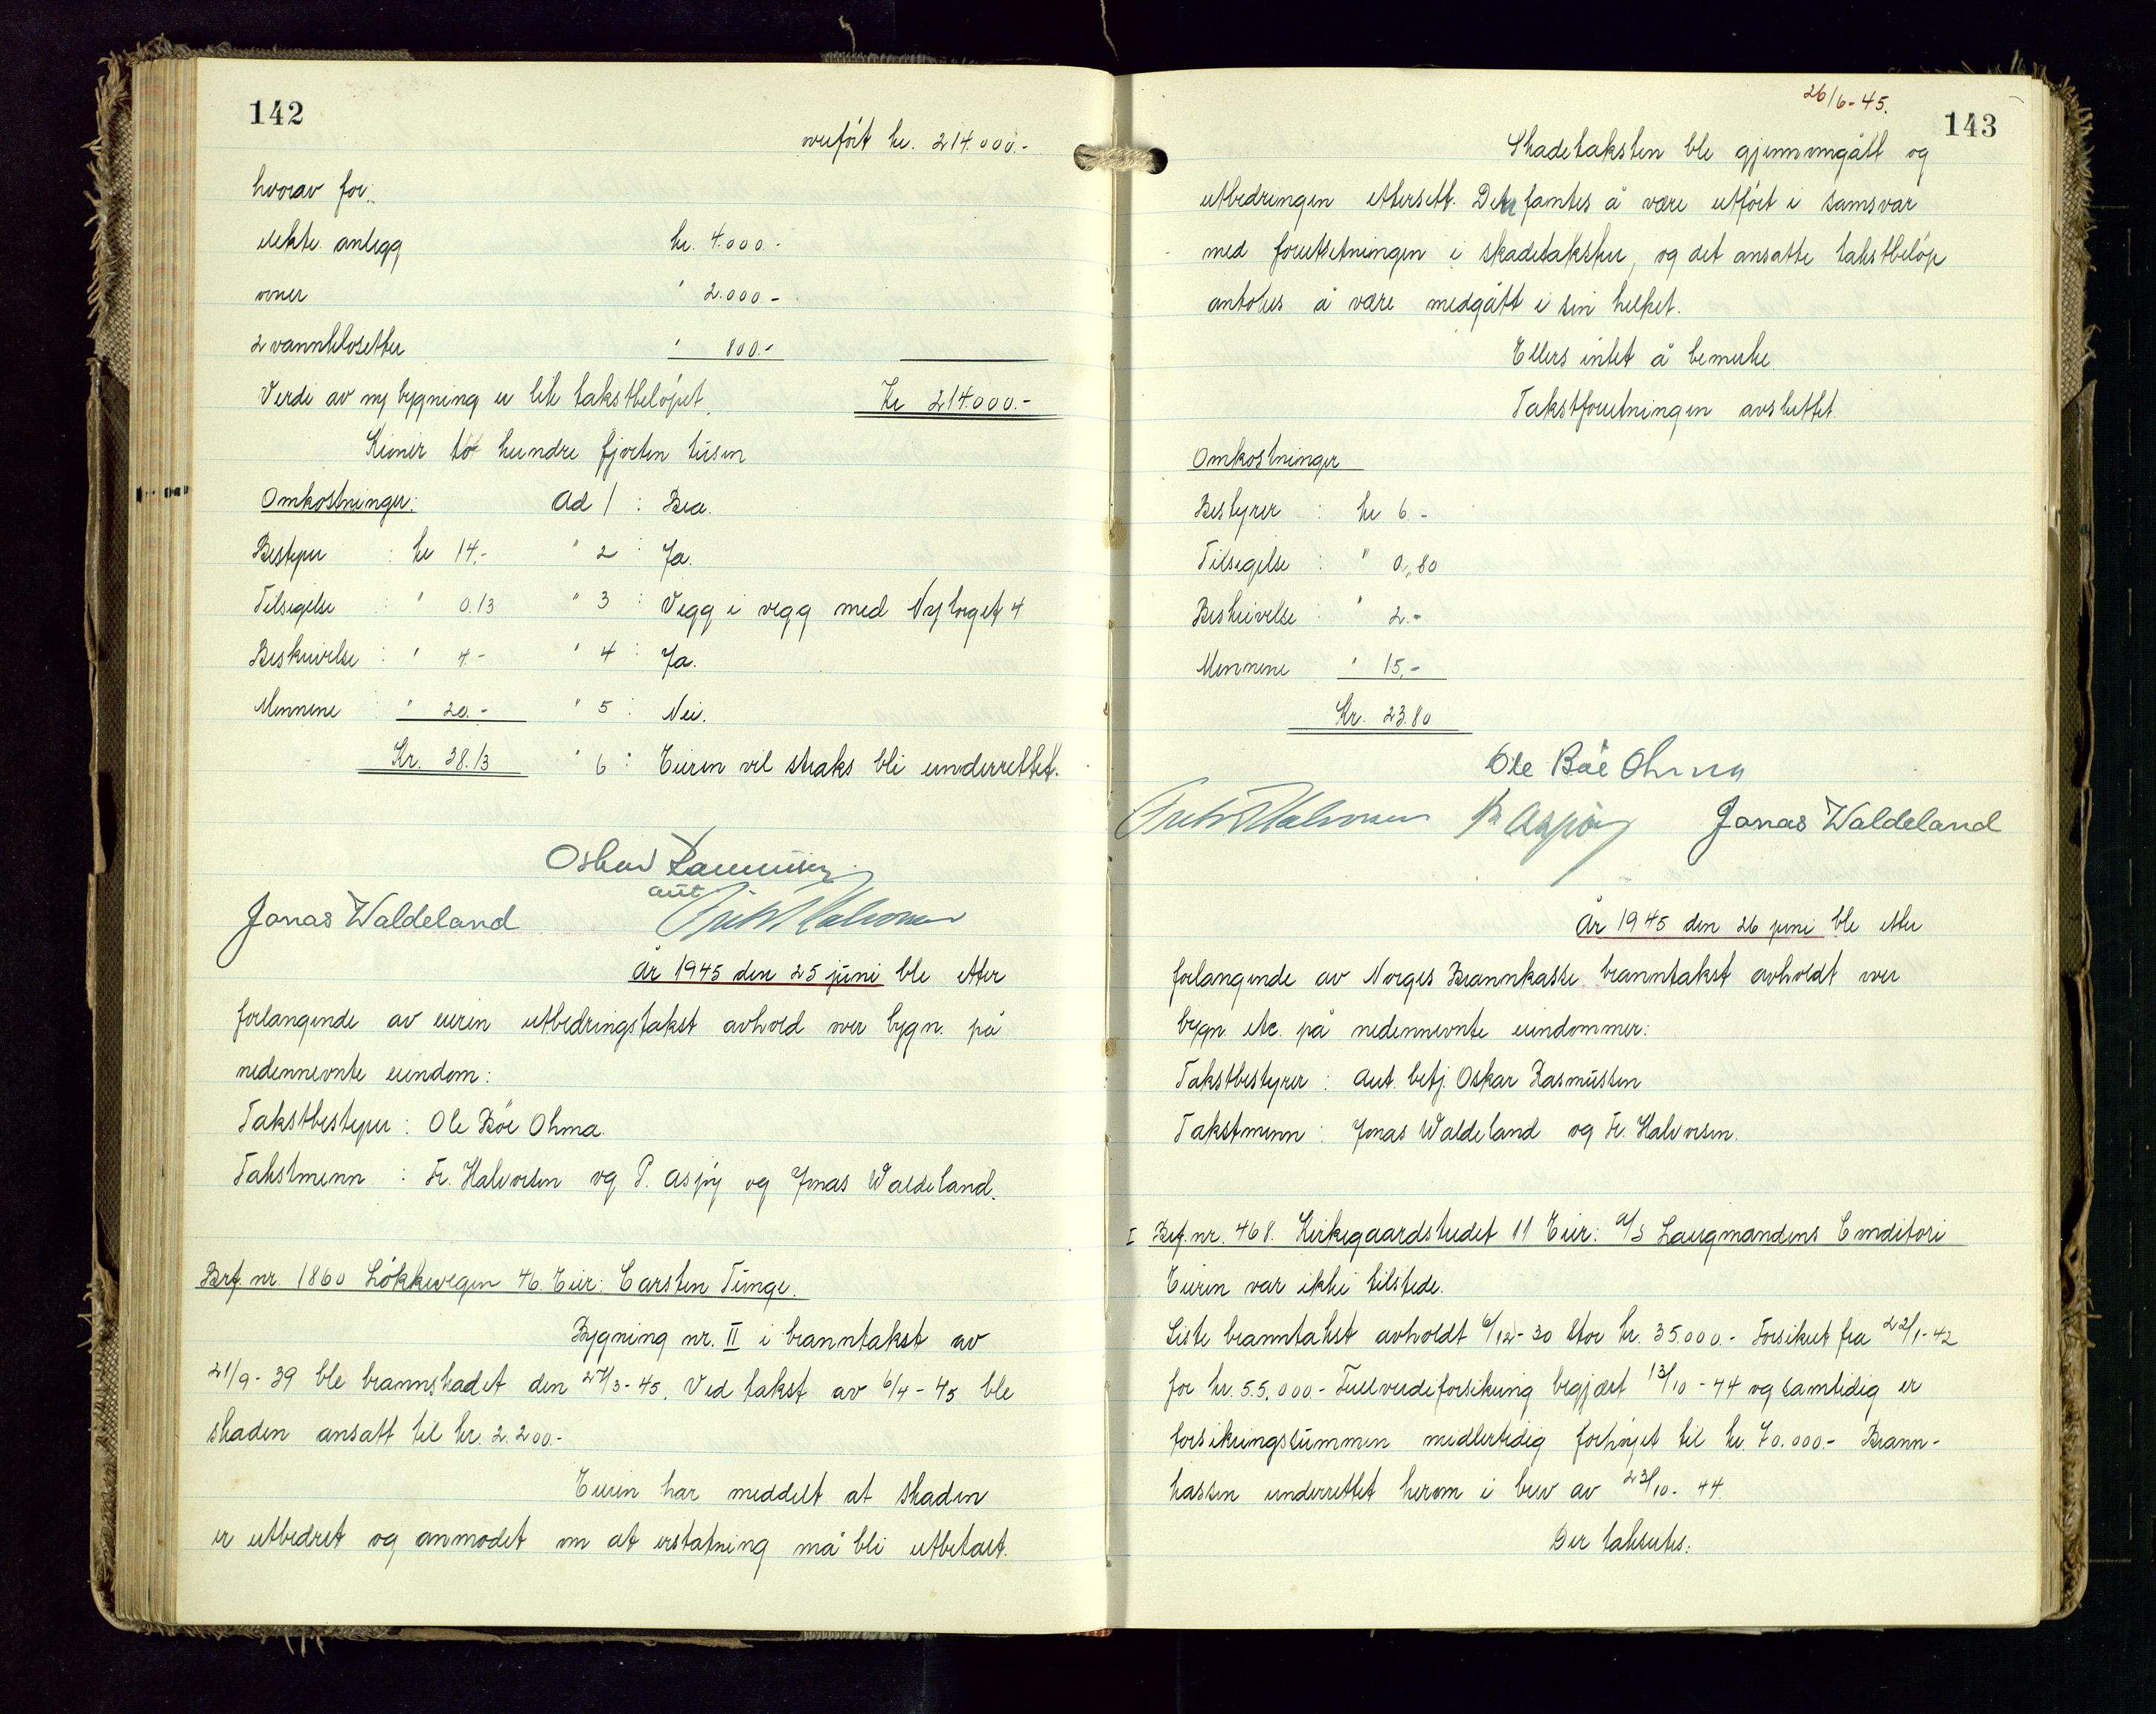 142
overført kr. 214.000.-
hvorav for:
elektr. anlegg kr. 4.000.-
ovner " 2.000.-
2 vannklosetter " 800.-
Verdi av ny bygning er lik takstbeløpet. Kr 214.000.-
Kroner to hundre fjorten tusen
Omkostninger: Ad 1 : Bra.
Bestyrer : kr 14.- " 2 : Ja.
Tilsigelse : " 0.13 " 3 : Vegg i vegg med Nytorget 4
Beskrivelse : " 4.- " 4 : Ja.
Mennene " 20.- " 5 : Nei.
Kr. 38.13 " 6 : Eieren vil straks bli underrettet.
Oskar Rasmussen
aut
Jonas Waldeland Fritz Halvorsen
År 1945 den 25 juni ble etter
forlangende av eieren utbedringstakst avhold over bygn. på
nedennevnte eiendom:
Takstbestyrer : Ole Böe Ohma.
Takstmenn : Fr. Halvorsen og P. Aspöy og Jonas Waldeland.
Brf. nr. 1860 Lökkeveien 46. Eier: Carsten Tunge.
Bygning nr. II i branntakst av
21/9-39 ble brannskadet den 27/3-45. Ved takst av 6/4-45 ble
skaden ansatt til kr. 2.200.-
Eieren har meddelt at skaden
er utbedret og anmodet om at erstatning må bli utbetalt.
26/6-45.
143
Skadetaksten ble gjennomgått og
utbedringen ettersett. Den fantes å være utfört i samsvar
med forutsetningen i skadetaksten, og det ansatte takstbelöp
antokes å være medgått i sin helhet.
Ellers intet å bemerke.
Takstforretningen avsluttet.
Omkostninger
Bestyrer : kr 6.-
Tilsigelse : " 0,80
Beskrivelse : " 2.-
Mennene " 15,-
Kr. 23.80
Ole Böe Ohma
Fritz Halvorsen P. Aspöy Jonas Waldeland
År 1945 den 26 juni ble etter
forlangende av Norges Brannkasse branntakst avholdt over
bygn. etc. på nedennevnte eiendommer:
Takstbestyrer : Aut. betj. Oskar Rasmussen
Takstmenn : Jonas Waldeland og Fr. Halvorsen.
I Brf. nr. 468. Kirkegaardstredet 11 Eier: A/S Laugmandens Conditori
Eieren var ikke tilstede.
Siste branntakst avholdt 6/12-30 stor kr. 35.000.- Forsikret fra 22/1-42
for kr. 55.000.- Fullverdiforsikring begjært 13/10-44 og samtidig er
forsikringssummen midlertidig forhöyet til kr. 70.000.- Brann-
kassen underrettet herom i brev av 23/10-44.
Der takseres: